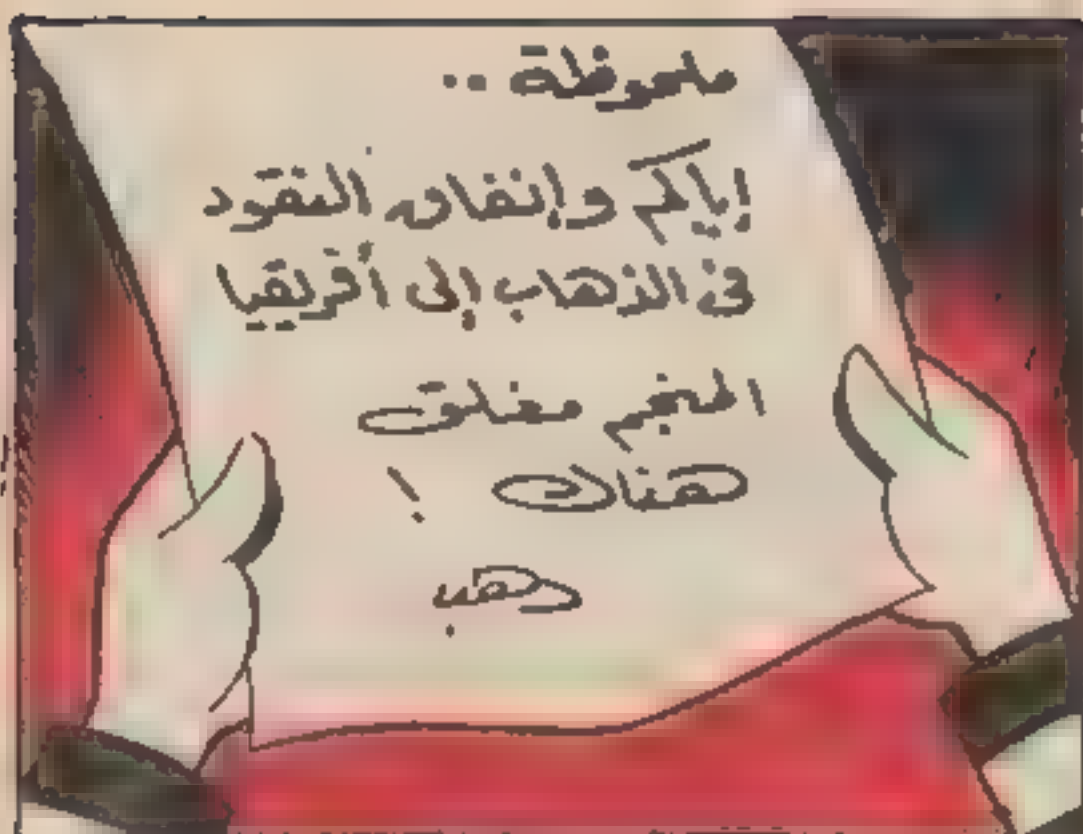 ملحوظة ..
إياكم وإنفاق النقود
فى الذهاب إلى أفريقيا
المنجم مغلق
هناك !